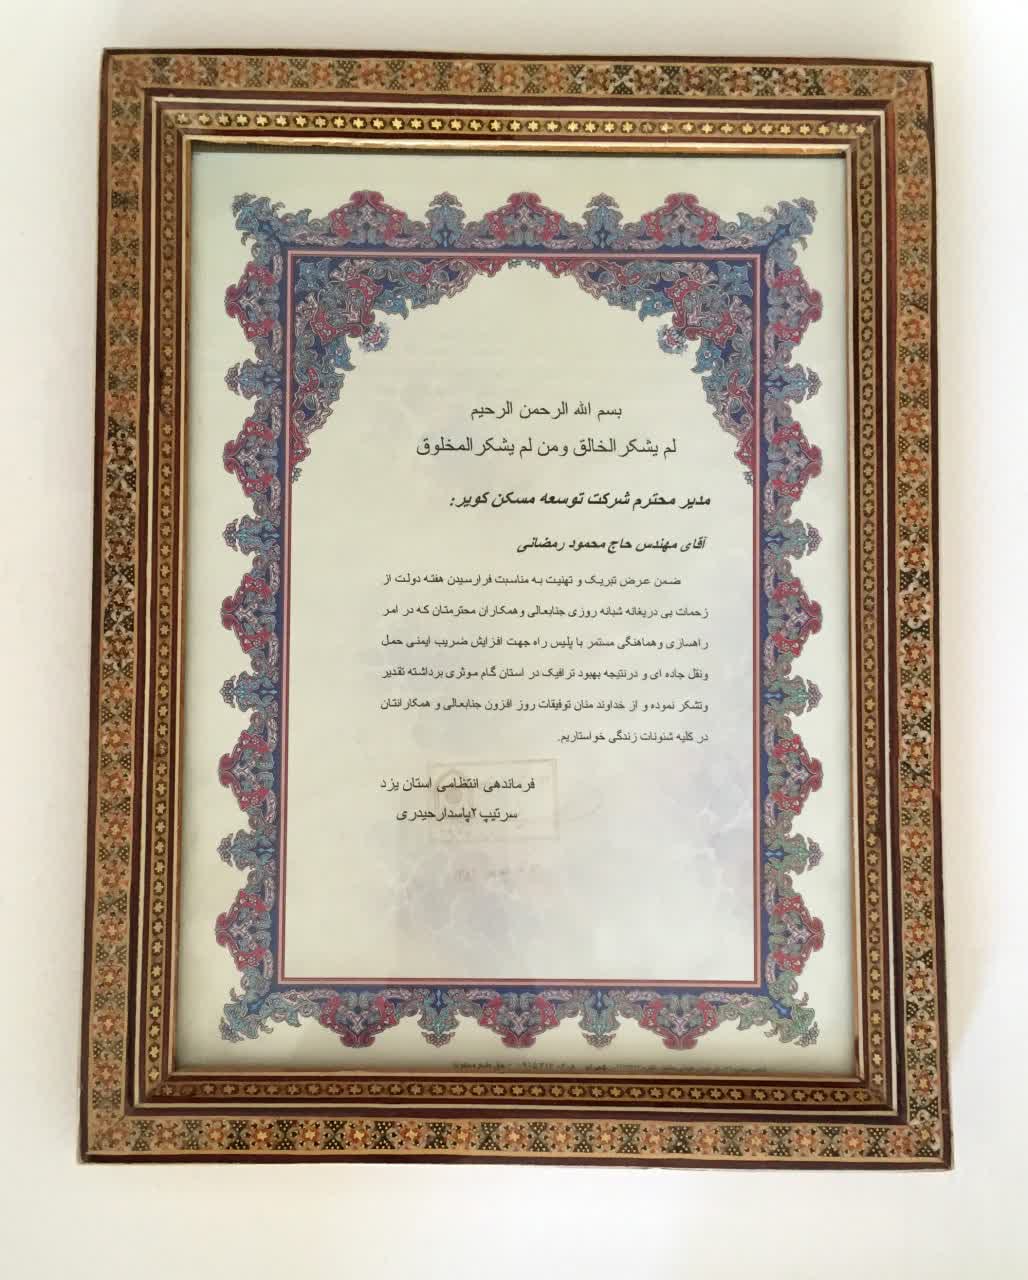 بسم الله الرحمن الرحیم
لم یشکرالخالق ومن لم یشکرالمخلوق
مدیر محترم شرکت توسعه مسکن کویر:
آقای مهندس حاج محمود رمضانی
ضمن عرض تبریک و تهنیت به مناسبت فرارسیدن هفته دولت از
زحمات بی دریغانه شبانه روزی جنابعالی وهمکاران محترمتان که در امر
راهسازی وهماهنگی مستمر با پلیس راه جهت افزایش ضریب ایمنی حمل
ونقل جاده ای و درنتیجه بهبود ترافیک در استان گام موثری برداشته تقدیر
وتشکر نموده و از خداوند منان توفیقات روز افزون جنابعالی و همکارانتان
در کلیه شئونات زندگی خواستاریم.
فرماندهی انتظامی استان یزد
سرتیپ۲پاسدارحیدری